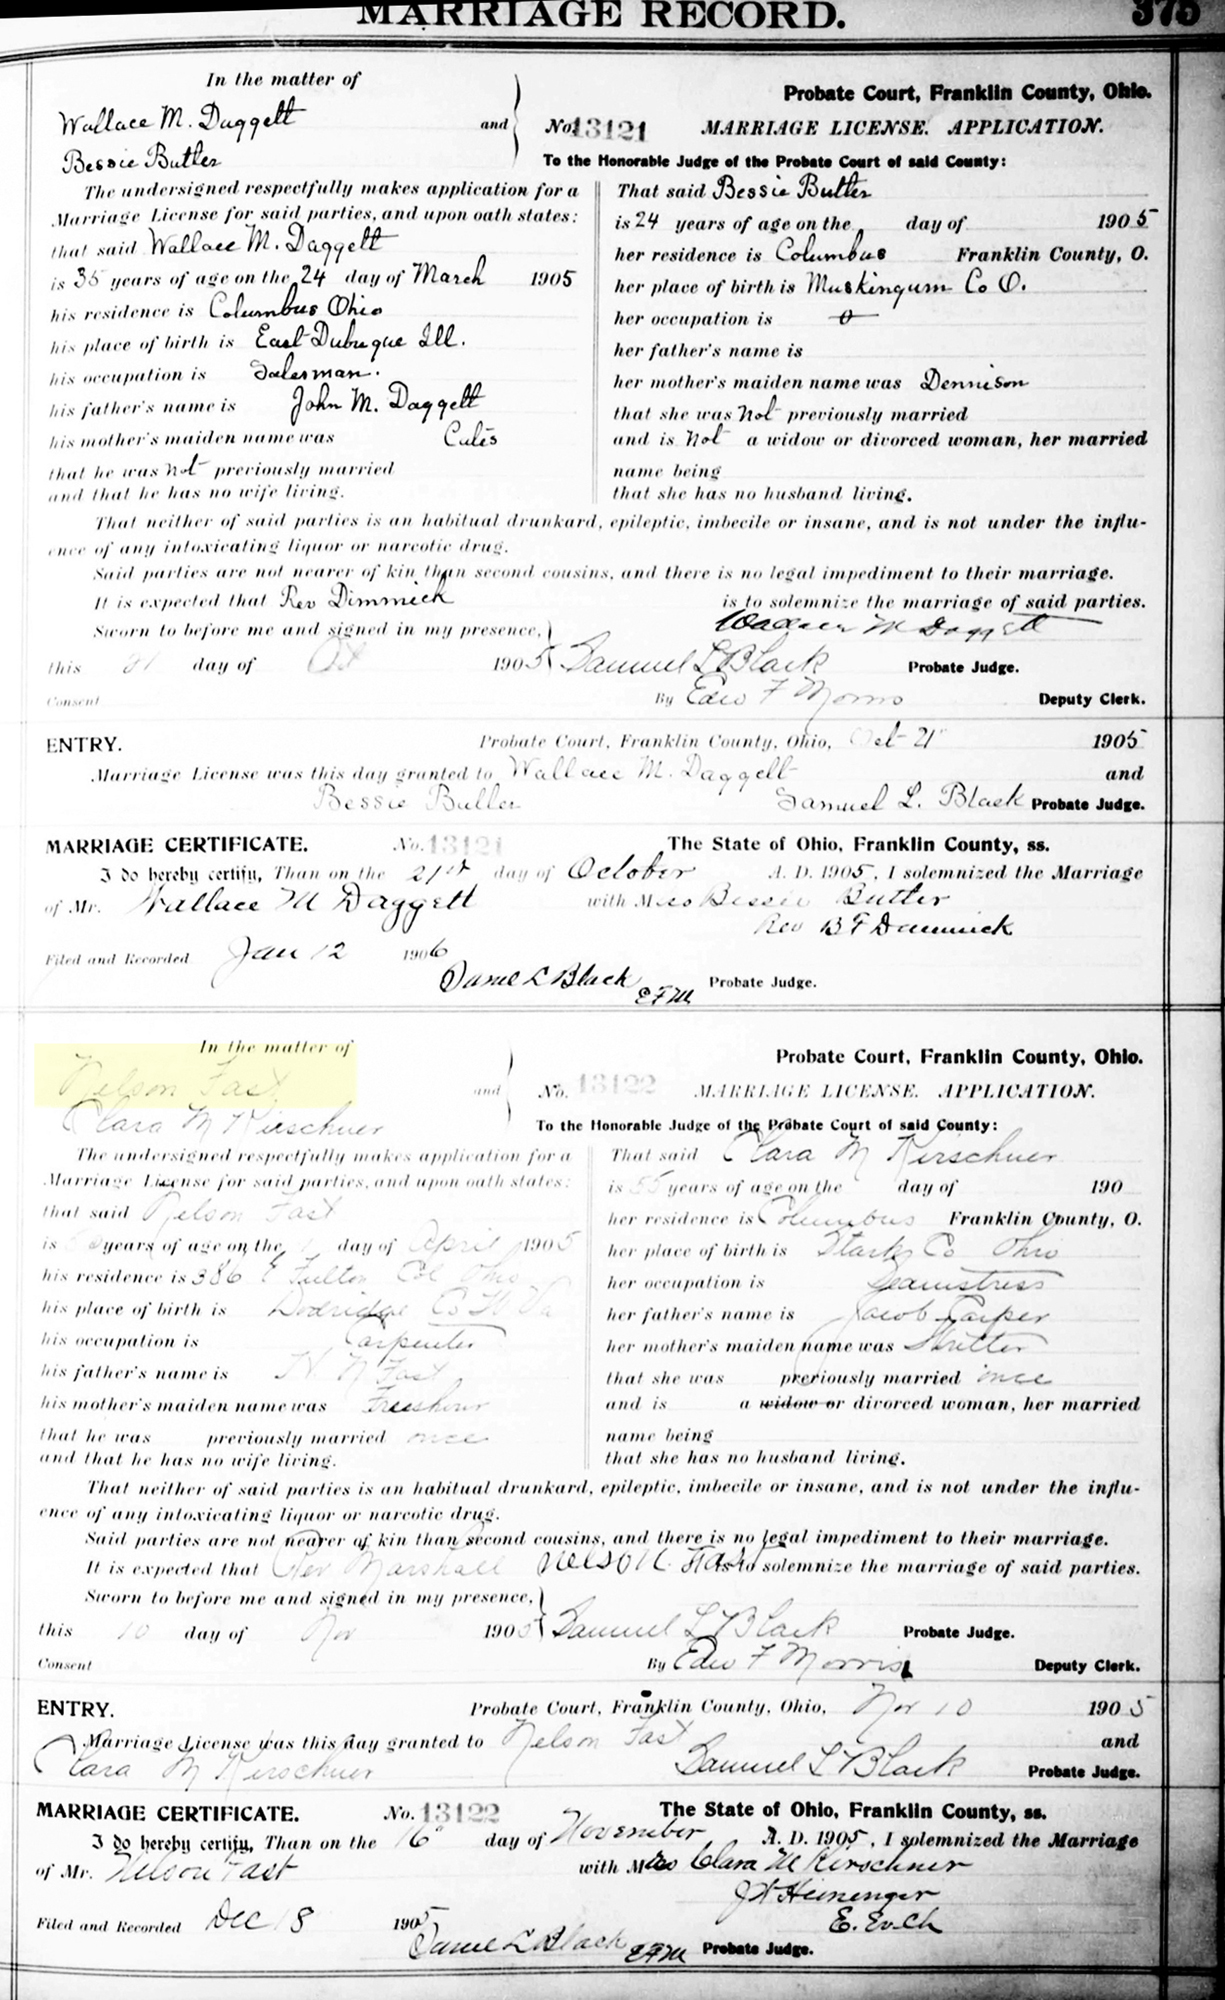 MARRIAGE RECORD. 375
In the matter of
Wallace M. Daggett and
Bessie Butler
Probate Court, Franklin County, Ohio.
No. 13121 MARRIAGE LICENSE. APPLICATION.
To the Honorable Judge of the Probate Court of said County:
The undersigned respectfully makes application for a
Marriage License for said parties, and upon oath states:
that said Wallace M. Daggett
is 35 years of age on the 24 day of March 1905
his residence is Columbus Ohio
his place of birth is East Dubuque Ill.
his occupation is Salesman.
his father's name is John M. Daggett
his mother's maiden name was
that he was not previously married
and that he has no wife living.
That said Bessie Butler
is 24 years of age on the day of 1905
her residence is Columbus Franklin County, O.
her place of birth is Muskingum Co O.
her occupation is 0
her father's name is
her mother's maiden name was Dennison
that she was not previously married
and is not a widow or divorced woman, her married
name being
that she has no husband living.
That neither of said parties is an habitual drunkard, epileptic, imbecile or insane, and is not under the influ-
ence of any intoxicating liquor or narcotic drug.
Said parties are not nearer of kin than second cousins, and there is no legal impediment to their marriage.
It is expected that Rev Dimmick is to solemnize the marriage of said parties.
Wallace M Daggett
Sworn to before me and signed in my presence,
this 21 day of Oct 1905 Samuel L Black Probate Judge.
Consent By Edw F Morris Deputy Clerk.
ENTRY. Probate Court, Franklin County, Ohio, Oct 21 1905
Marriage License was this day granted to Wallace M. Daggett and
Bessie Butler Samuel L. Black Probate Judge.
MARRIAGE CERTIFICATE. No. 13121 The State of Ohio, Franklin County, ss.
I do hereby certify, Than on the 21st day of October A. D. 1905, I solemnized the Marriage
of Mr. Wallace M Daggett with Miss Bessie Butler
Rev B F Dimmick
Filed and Recorded Jan 12 1906
Saml L Black EFM Probate Judge.
In the matter of
Nelson Fast and
Clara M Kirschner
Probate Court, Franklin County, Ohio.
No. 13122 MARRIAGE LICENSE. APPLICATION.
To the Honorable Judge of the Probate Court of said County:
The undersigned respectfully makes application for a
Marriage License for said parties, and upon oath states:
that said Nelson Fast
is years of age on the day of April 1905
his residence is 386 E Fulton Col Ohio
his place of birth is Dodridge Co W Va
his occupation is Carpenter
his father's name is N Fast
his mother's maiden name was Freeshour
that he was previously married once
and that he has no wife living.
That said Clara M Kirschner
is 55 years of age on the day of 190
her residence is Columbus Franklin County, O.
her place of birth is Stark Co Ohio
her occupation is Seamstress
her father's name is Jacob Carper
her mother's maiden name was
that she was previously married once
and is a widow or divorced woman, her married
name being
that she has no husband living.
That neither of said parties is an habitual drunkard, epileptic, imbecile or insane, and is not under the influ-
ence of any intoxicating liquor or narcotic drug.
Said parties are not nearer of kin than second cousins, and there is no legal impediment to their marriage.
It is expected that Rev Marshall Nelson Fast is to solemnize the marriage of said parties.
Sworn to before me and signed in my presence,
this 10 day of Nov 1905 Samuel L Black Probate Judge.
Consent By Edw F Morris Deputy Clerk.
ENTRY. Probate Court, Franklin County, Ohio, Nov 10 1905
Marriage License was this day granted to Nelson Fast and
Clara M Kirschner Samuel L Black Probate Judge.
MARRIAGE CERTIFICATE. No. 13122 The State of Ohio, Franklin County, ss.
I do hereby certify, Than on the 16" day of November A. D. 1905, I solemnized the Marriage
of Mr. Nelson Fast with Mrs Clara M Kirschner
J W Heininger
E. Ev. Ch
Filed and Recorded Dec 18 1905
Saml L Black EFM Probate Judge.